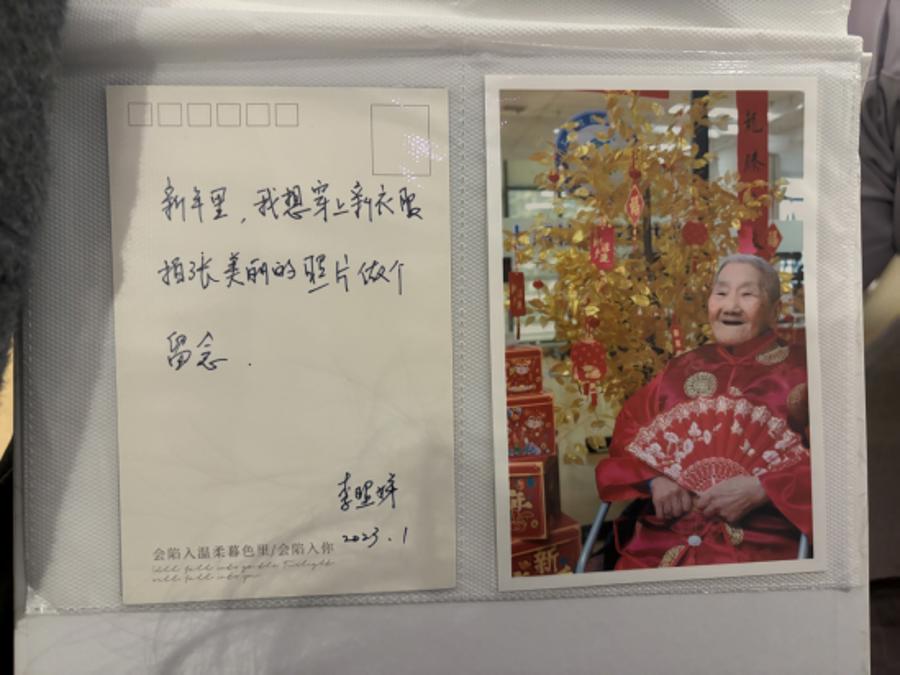 新年里，我想穿上新衣服
拍张美丽的照片做个
留念.
李照妹
2023.1
会陷入温柔暮色里/会陷入你
龙腾
福
新